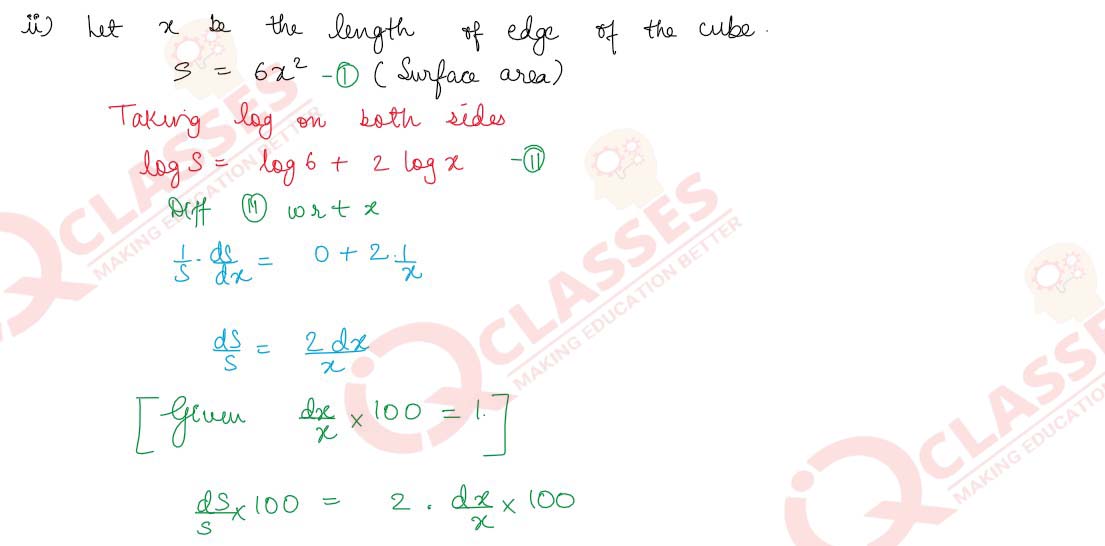 ii) Let x be the length of edge of the cube.
S = 6x² -① (Surface area)
Taking log on both sides
log S = log 6 + 2 log x -⑪
Diff ⑪ wrt x
1/S · ds/dx = 0 + 2·1/x
ds/S = 2 dx/x
[Given dx/x × 100 = 1.]
ds/S × 100 = 2 . dx/x × 100
IQ CLASSES
MAKING EDUCATION BETTER
IQ CLASSES
MAKING EDUCATION BETTER
IQ CLASSES
MAKING EDUCATION